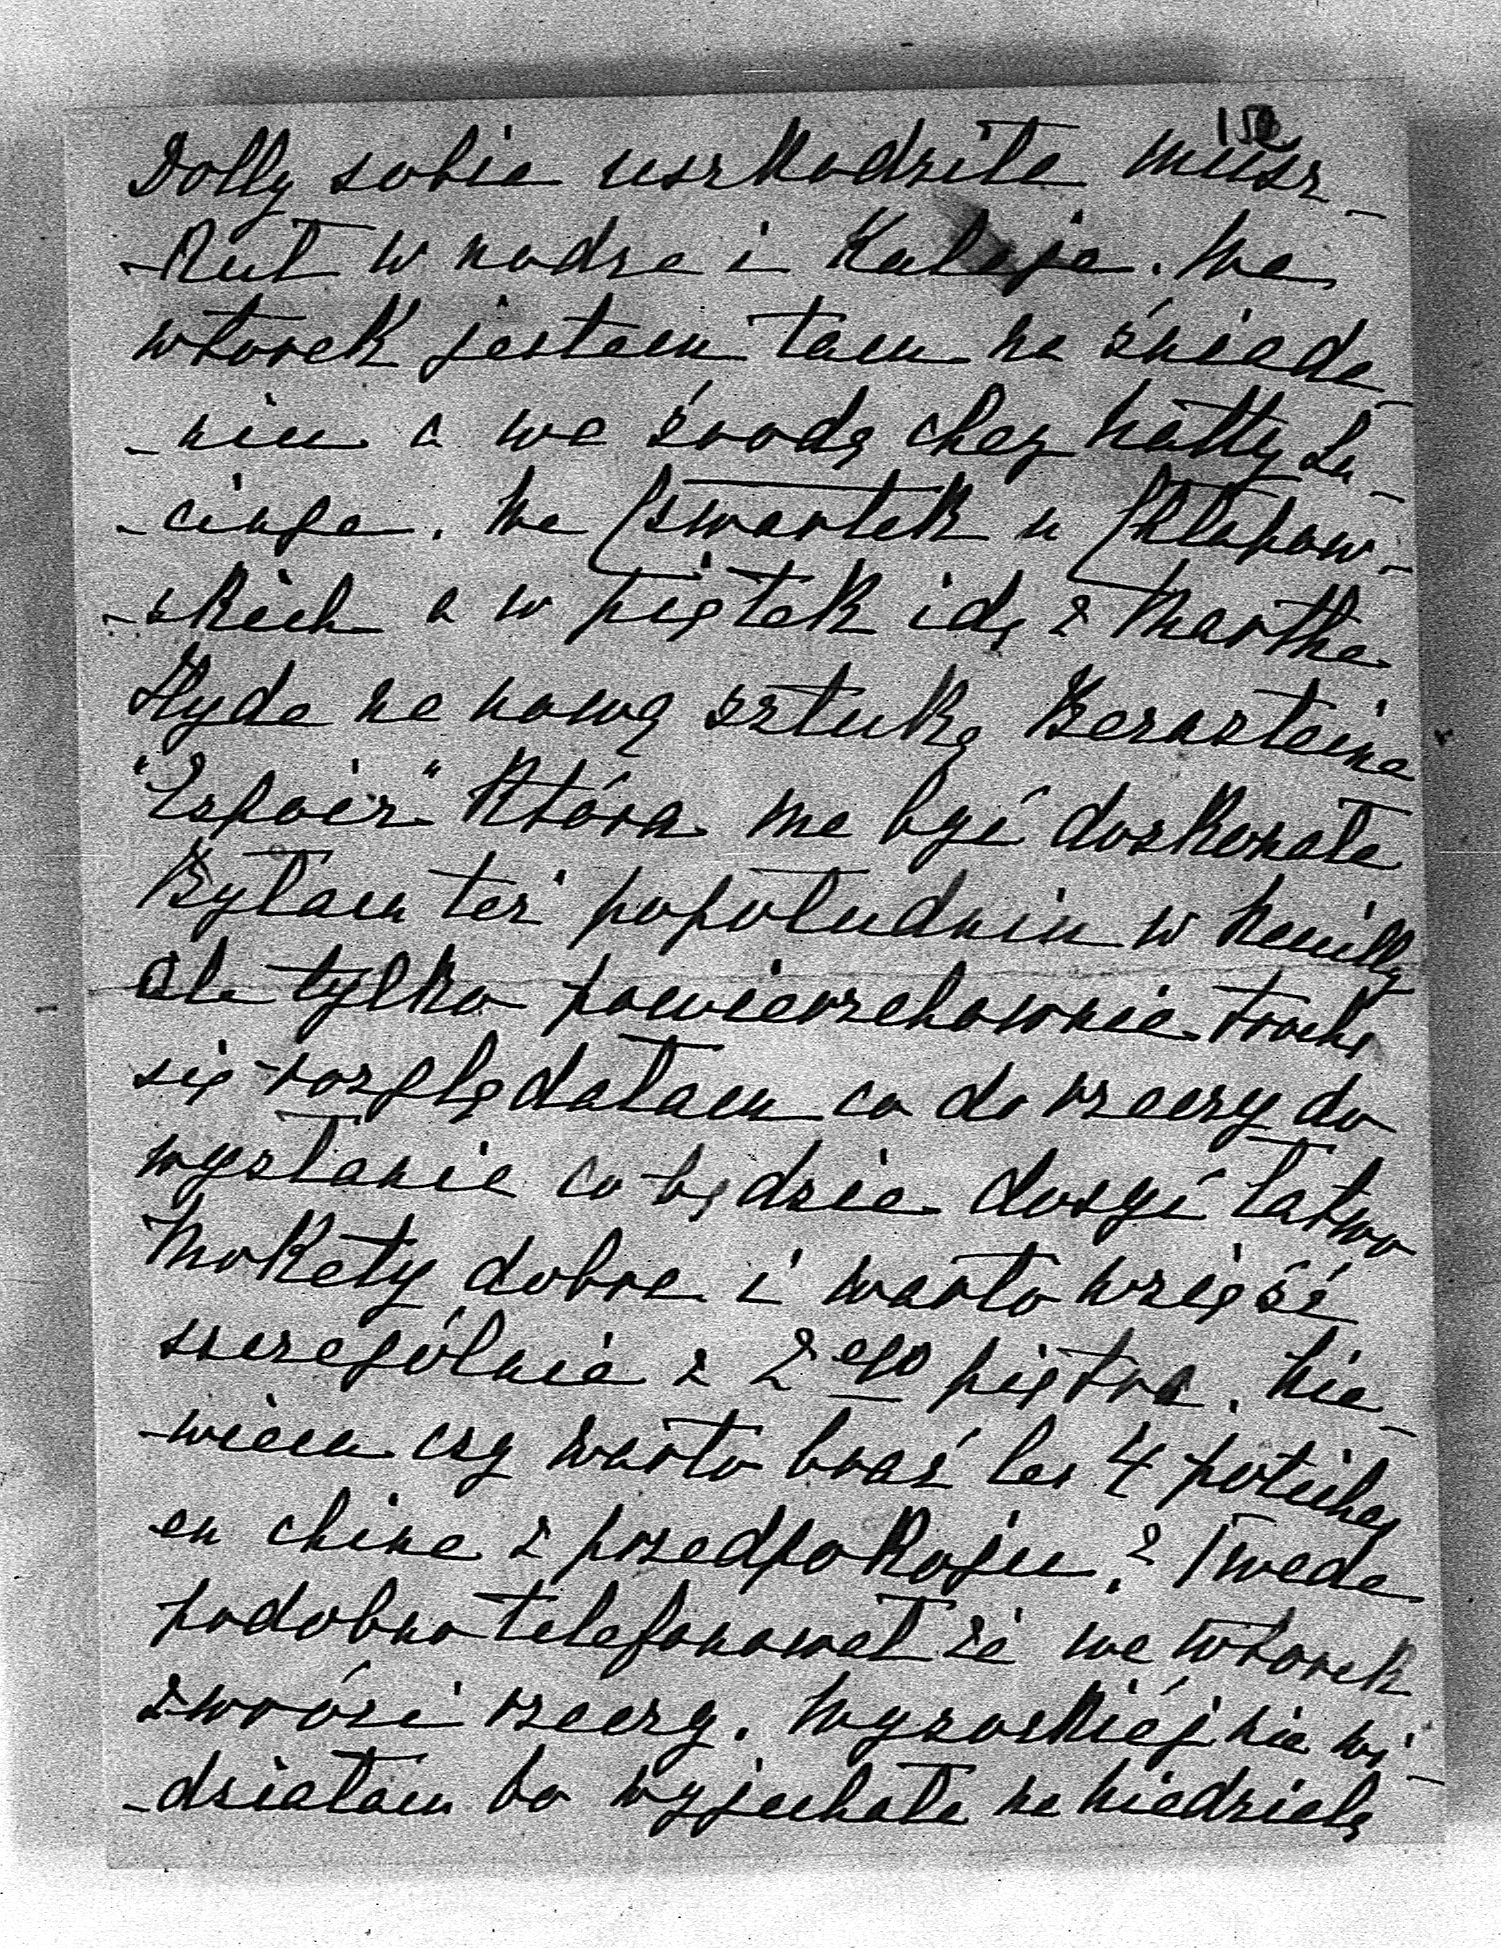 150
Dolly sobie uszkodziła musz-
-kuł w nodze i kuleje. We
wtorek jestem tam na śniada-
-niu a we środę chez Hatty La-
-cinge. We Czwartek u Chłapow-
-skich a w piątek idę z Marthe
Hyde na nową sztukę Bernsteina
"Espoir" która ma być doskonała
Byłam też popołudniu w Neuilly
ale tylko powierzchownie trochę
się rozglądałam co do rzeczy do
wysłania co będzie dosyć łatwo
Mokety dobre i warto wziąść
szczególnie z 2ego piętra. Nie-
-wiem czy warto brać les 4 potiches
en chine z przedpokoju? Twede
podobno telefonował że we wtorek
zwróci rzeczy. Wyzoskiéj nie wi-
-działam bo wyjechała na niedzielę